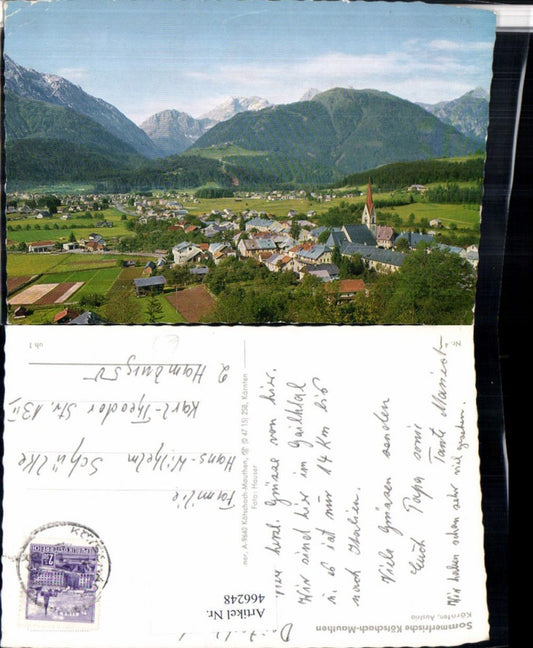 Nr. 4
uh 1
Sommerfrische Kötschach-Mauthen
Kärnten, Austria
herzl. Grüsse von hier.
Wir sind hier im Gailtal
u. es ist nur 14 Km bis
nach Italien.
Viele Grüsse senden
Euch Papa sowie
Tante
Wir haben schon sehr viel gesehen.
A-9640 Kötschach-Mauthen, ☎ (0 47 15) 258, Kärnten
Foto: Hauser
Familie
Hans-Wilhelm Schülke
Karl-Theodor Str. 13 II
2 Hamburg 50
REPUBLIK ÖSTERREICH
Artikel Nr.
466248